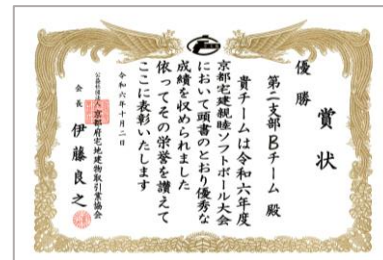 賞状
優勝
第二支部Bチーム 殿
貴チームは令和六年度
京都宅建親睦ソフトボール大会
において頭書のとおり優秀な
成績を収められました
依ってその栄誉を讃えて
ここに表彰いたします
令和六年十月二日
公益社団法人 京都府宅地建物取引業協会
会長 伊藤良之